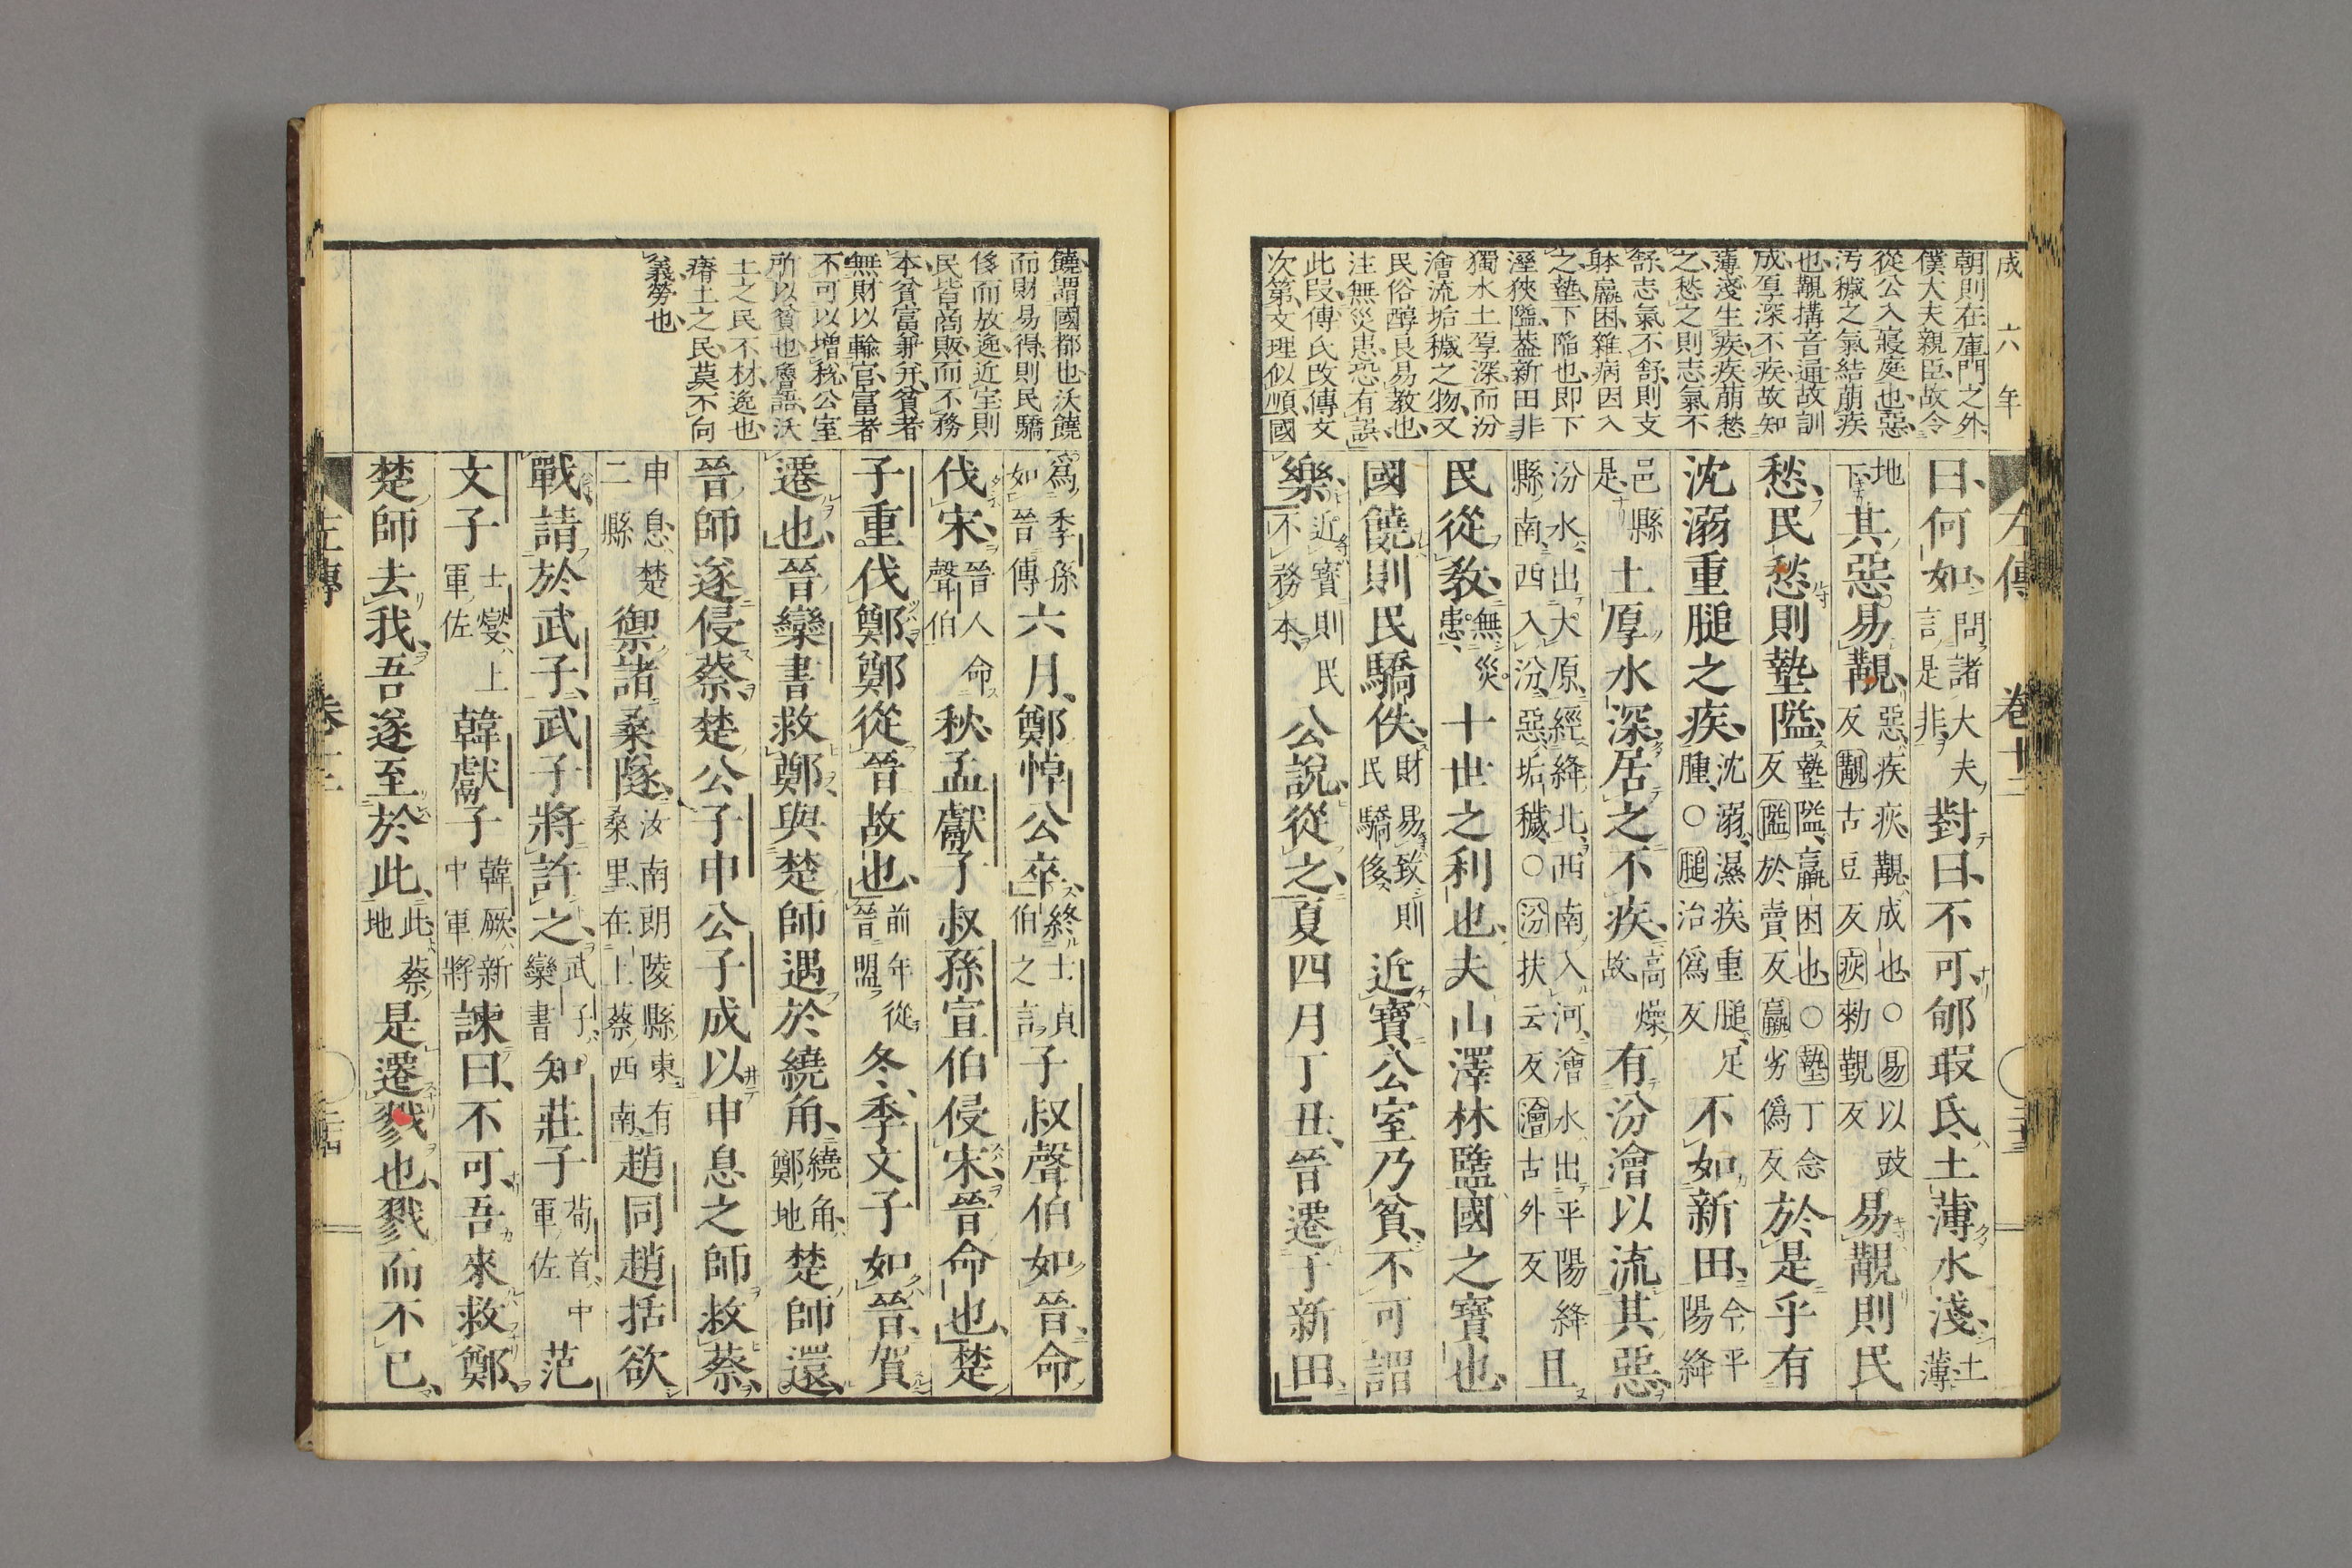 成 六年
朝則在庫門之外
僕大夫親臣故令
從公入寢庭也惡
汚穢之氣結崩疾
也覯搆音通故訓
成厚深不疾故知
薄淺生疾疾萠愁
之愁之則志氣不
舒志氣不舒則支
躰羸困雜病因入
之墊下陷也即下
溼狹隘葢新田非
獨水土厚深而汾
澮流垢穢之物又
民俗醇良易敎也
注無災患恐有誤
此段傳氏改傳文
次第文理似順國
左傳 卷十二
曰何如問諸大夫言是非對曰不可郇瑕氏土薄水淺土薄
地下其惡易覯惡疾疢覯成也○易以豉反覯古豆反疢勑覲反易覯則民
愁民愁則墊隘墊隘羸困也○墊丁念反隘於賣反羸劣僞反於是乎有
沈溺重膇之疾沈溺濕疾重膇足腫○膇治僞反不如新田今平陽絳
邑縣是土厚水深居之不疾高燥故有汾澮以流其惡
汾水出大原經絳北西南入河澮水出平陽絳縣南西入汾惡垢穢○汾扶云反澮古外反且
民從敎無災患十世之利也夫山澤林盬國之寶也
國饒則民驕佚財易致則民驕侈近寶公室乃貧不可謂
樂近寶則民不務本公說從之夏四月丁丑晉遷于新田
饒謂國都也沃饒
而財易得則民驕
侈而放逸近宝則
民皆商販而不務
本貧富兼并貧者
無財以輸官富者
不可以增稅公室
所以貧也魯語沃
土之民不材逸也
瘠土之民莫不向
義勞也
爲季孫如晉傳六月鄭悼公卒終士貞伯之言子叔聲伯如晉命
伐宋晉人命聲伯秋孟獻子叔孫宣伯侵宋晉命也楚
子重伐鄭鄭從晉故也前年從晉盟冬季文子如晉賀
遷也晉欒書救鄭與楚師遇於繞角繞角鄭地楚師還
晉師遂侵蔡楚公子申公子成以申息之師救蔡
申息楚二縣禦諸桑隧汝南朗陵縣東有桑里在上蔡西南趙同趙括欲
戰請於武子武子將許之武子欒書知莊子荀首中軍佐范
文子士燮上軍佐韓獻子韓厥新中軍將諫曰不可吾來救鄭
楚師去我吾遂至於此此蔡地是遷戮也戮而不已